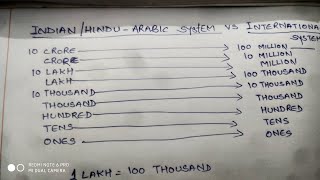 INDIAN/HINDU-ARABIC SYSTEM VS INTERNATIONA
SYSTEM
10 CRORE 100 MILLION
CRORE 10 MILLION
MILLION
10 LAKH 100 THOUSAND
LAKH 10 THOUSAND
10 THOUSAND THOUSAND
THOUSAND HUNDRED
HUNDRED TENS
TENS ONES
ONES
1 LAKH = 100 THOUSAND
REDMI NOTE 6 PRO
MI DUAL CAMERA